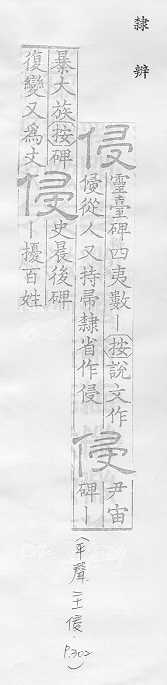 隸辨
侵
靈臺碑四夷數丨按說文作
㑴從人又持帚隸省作侵
侵
尹宙
碑丨
暴大族按碑
復變又為文
侵
史晨後碑
丨擾百姓
(平聲 二十一侵. P.302)